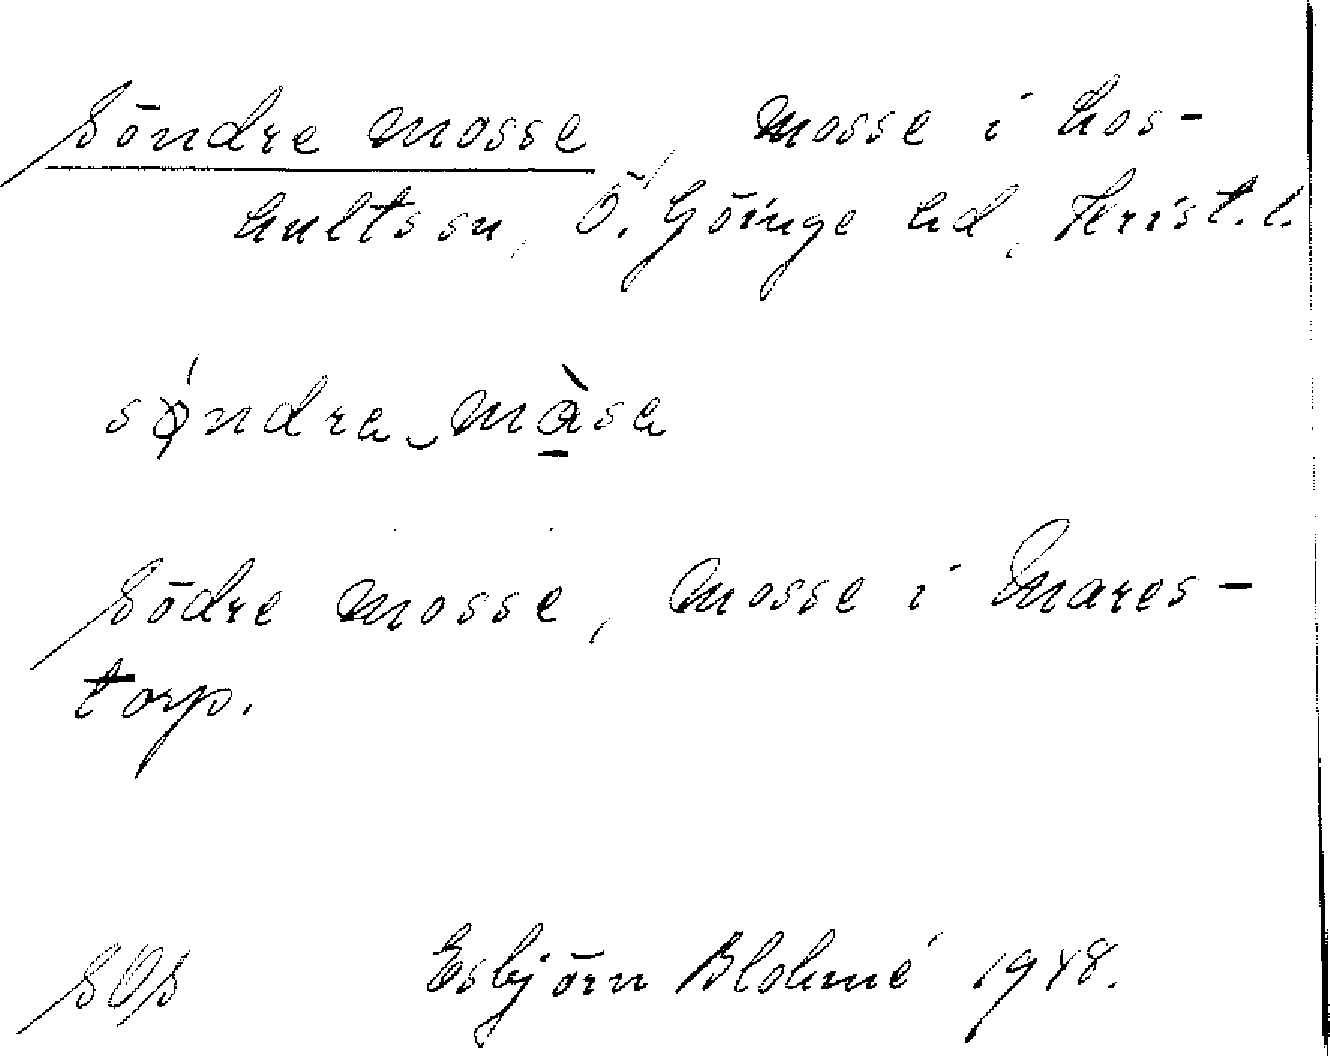 Söndre mosse, mosse i Los-
hults sn, Ö. Göinge hd, Krist. l.
søndra måsa
Södre mosse, mosse i Mares-
torp.
Esbjörn Blohmé 1948.